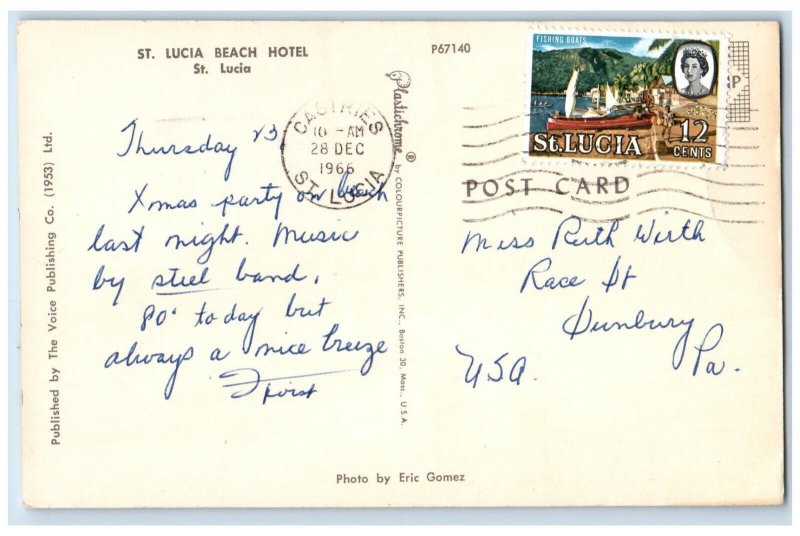 ST. LUCIA BEACH HOTEL
St. Lucia
P67140
FISHING BOATS
ST. LUCIA
12
CENTS
P
CASTRIES
10 - AM
28 DEC
1966
ST. LUCIA
POST CARD
Thursday 23
Xmas party on beach
last night. Music
by steel band.
80° today but
always a nice breeze
Miss Ruth Wirth
Race St
Sunbury
Pa.
USA.
Plastichrome ® by COLOURPICTURE PUBLISHERS, INC., Boston 30, Mass., U.S.A.
Published by The Voice Publishing Co. (1953) Ltd.
Photo by Eric Gomez